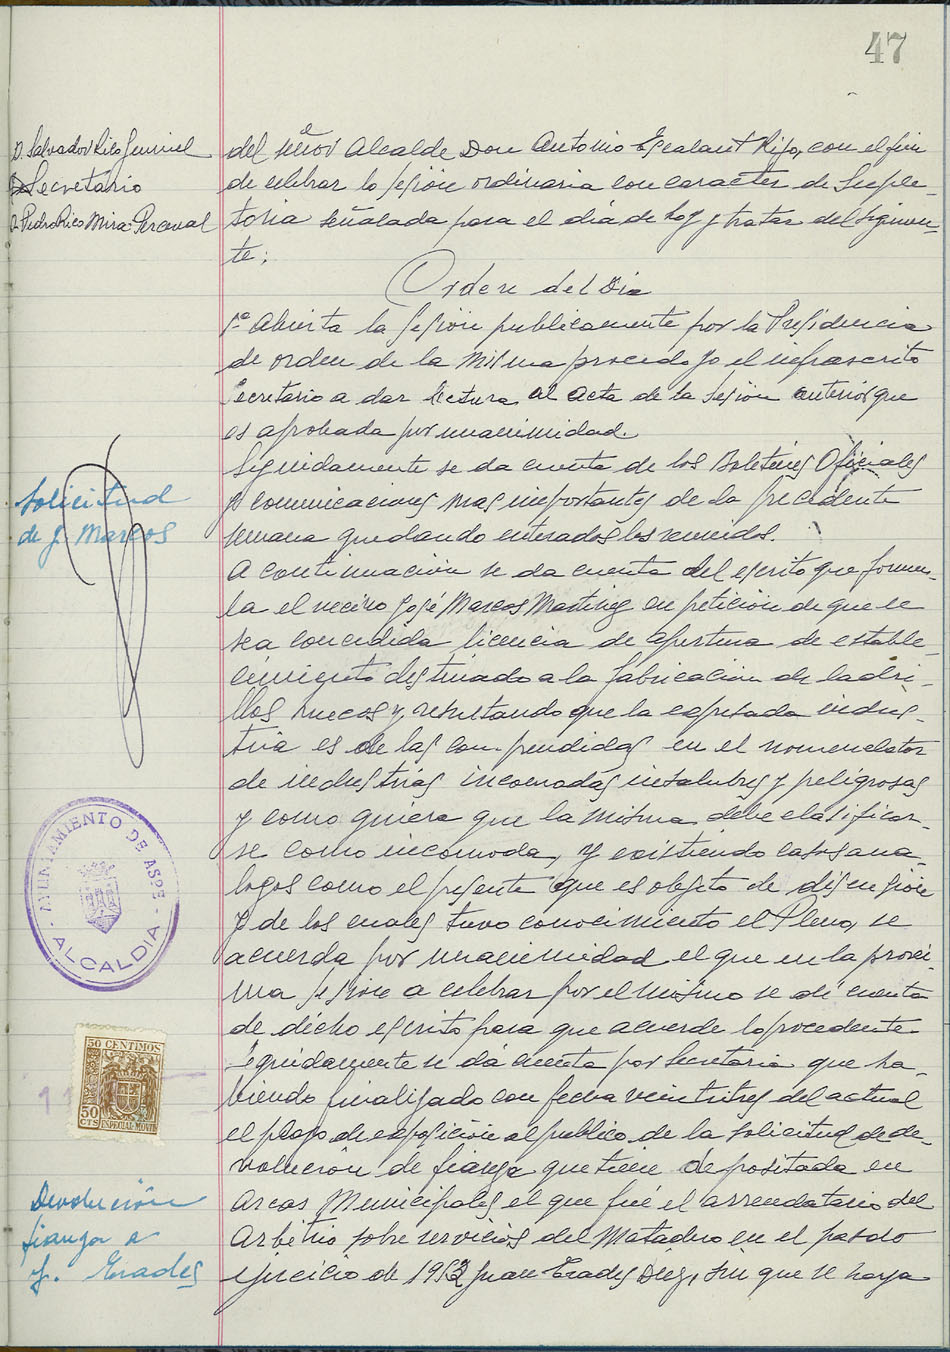 47
D. Salvador Rico
Secretario
D. Pedro Rico Mira-Perceval
del señor Alcalde Don Antonio Escalant Hijo, con el fin
de celebrar la sesión ordinaria con caracter de Suple-
toria señalada para el dia de hoy y tratar del siguien-
te;
Orden del Dia
1º Abierta la sesión publicamente por la Presidencia
de orden de la misma procedo yo el infrascrito
Secretario a dar lectura al acta de la sesión anterior que
es aprobada por unanimidad.
Seguidamente se da cuenta de los Boletines Oficiales
y comunicaciones mas importantes de la precedente
semana quedando enterados los reunidos.
Solicitud
de J. Marcos
A continuación se da cuenta del escrito que formu-
la el vecino José Marcos Martinez en petición de que le
sea concedida licencia de apertura de estable-
cimiento destinado a la fabricación de ladri-
llos huecos y, resultando que la expresada indus-
tria es de las comprendidas en el nomenclator
de industrias incomodas insalubres y peligrosas
y como quiera que la misma debe clasificar-
se como incomoda, y existiendo casos ana-
logos como el presente que es objeto de discusión
y de los cuales tuvo conocimiento el Pleno, se
acuerda por unanimidad el que en la proxi-
ma sesión a celebrar por el mismo se dé cuenta
de dicho escrito para que acuerde lo procedente.
AYUNTAMIENTO DE ASPE
ALCALDIA
50 CENTIMOS
50
CTS
ESPECIAL MOVIL
Seguidamente se dá cuenta por Secretaria que ha-
biendo finalizado con fecha veintitres del actual
el plazo de exposición al publico de la solicitud de de-
volución de fianza que tiene depositada en
Devolución
fianza a
J. Erades
Arcas Municipales el que fué el arrendatario del
Arbitrio sobre servicios del Matadero en el pasado
ejercicio de 1953 Juan Erades Diez, sin que se haya